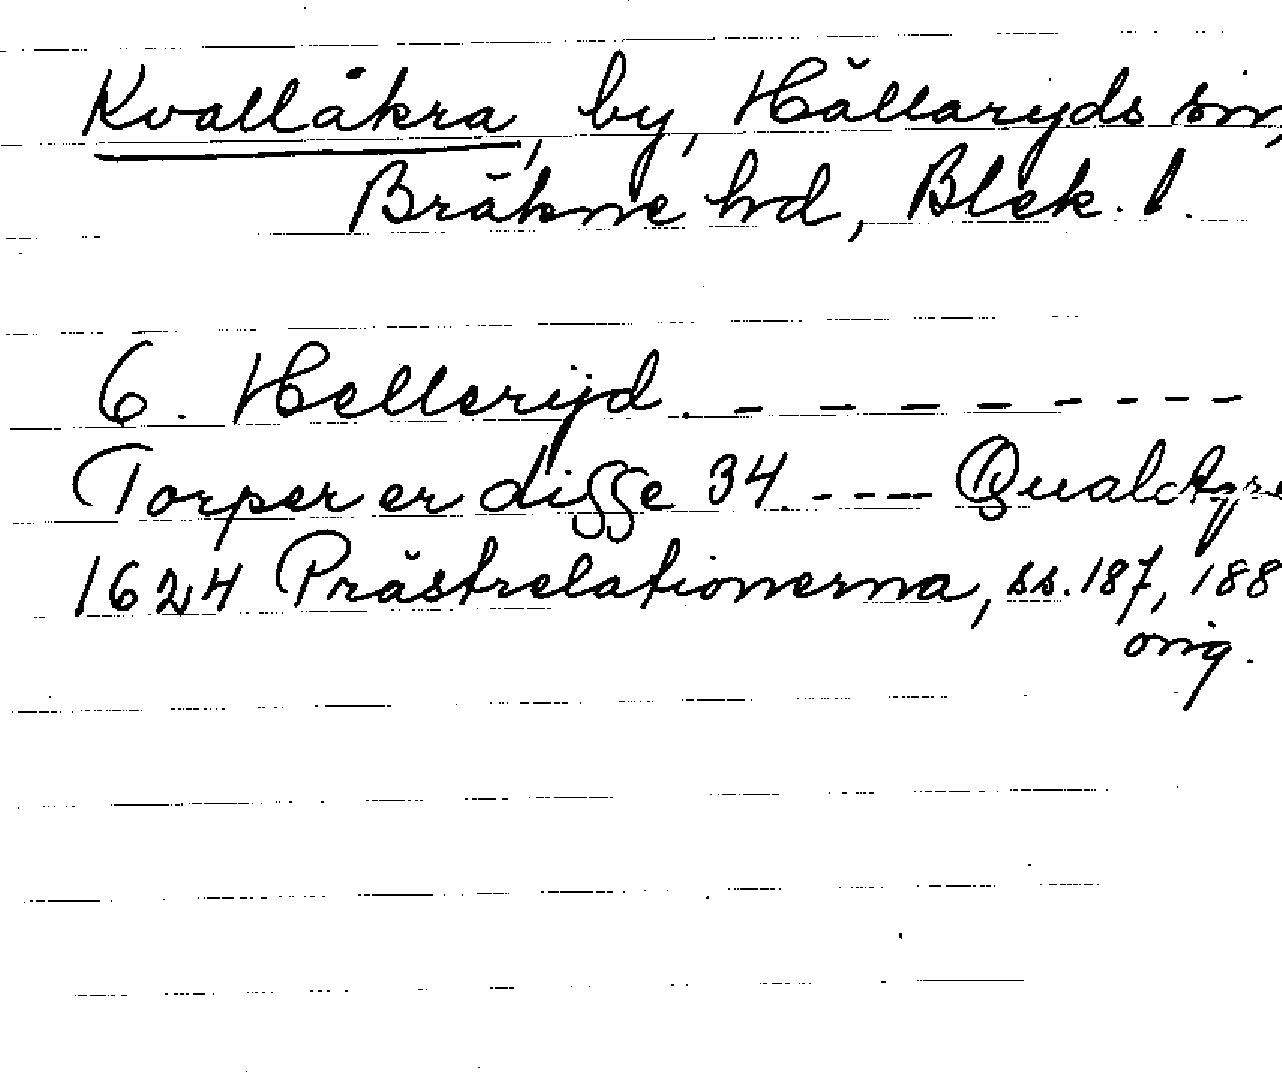 Kvallåkra, by, Hällaryds sn,
Bräkne hd, Blek. l.
6. Hellerÿd. - - - - - - - - -
Torper er disse 34. - - - - Qualdagre
1624 Prästrelationerna, ss. 187, 188
orig.